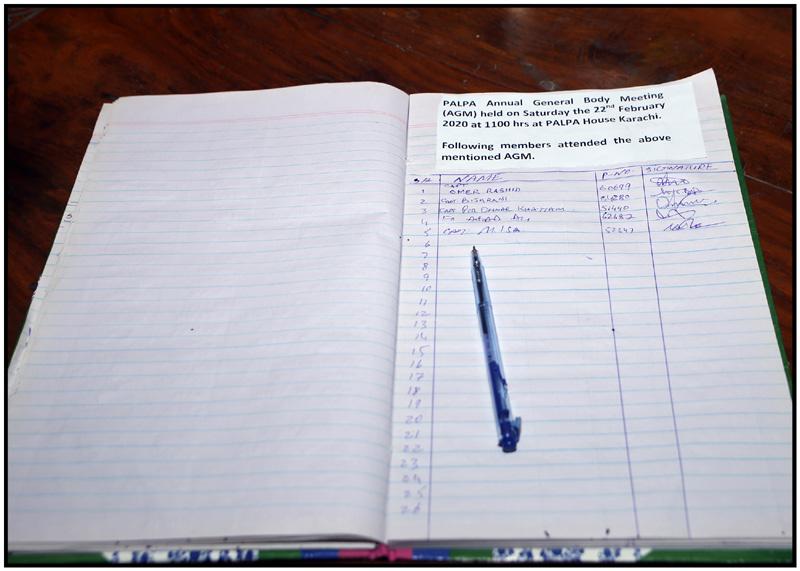 PALPA Annual General Body Meeting
(AGM) held on Saturday the 22nd February
2020 at 1100 hrs at PALPA House Karachi.
Following members attended the above
mentioned AGM.
S/N NAME P-NO SIGNATURE
1 CAPT OMER RASHID 60699
2 CAPT BIJARANI
3 CAPT
4 FO ALI
5 CAPT M. Isa
6
7
8
9
10
11
12
13
14
15
16
17
18
19
20
21
22
23
24
25
26